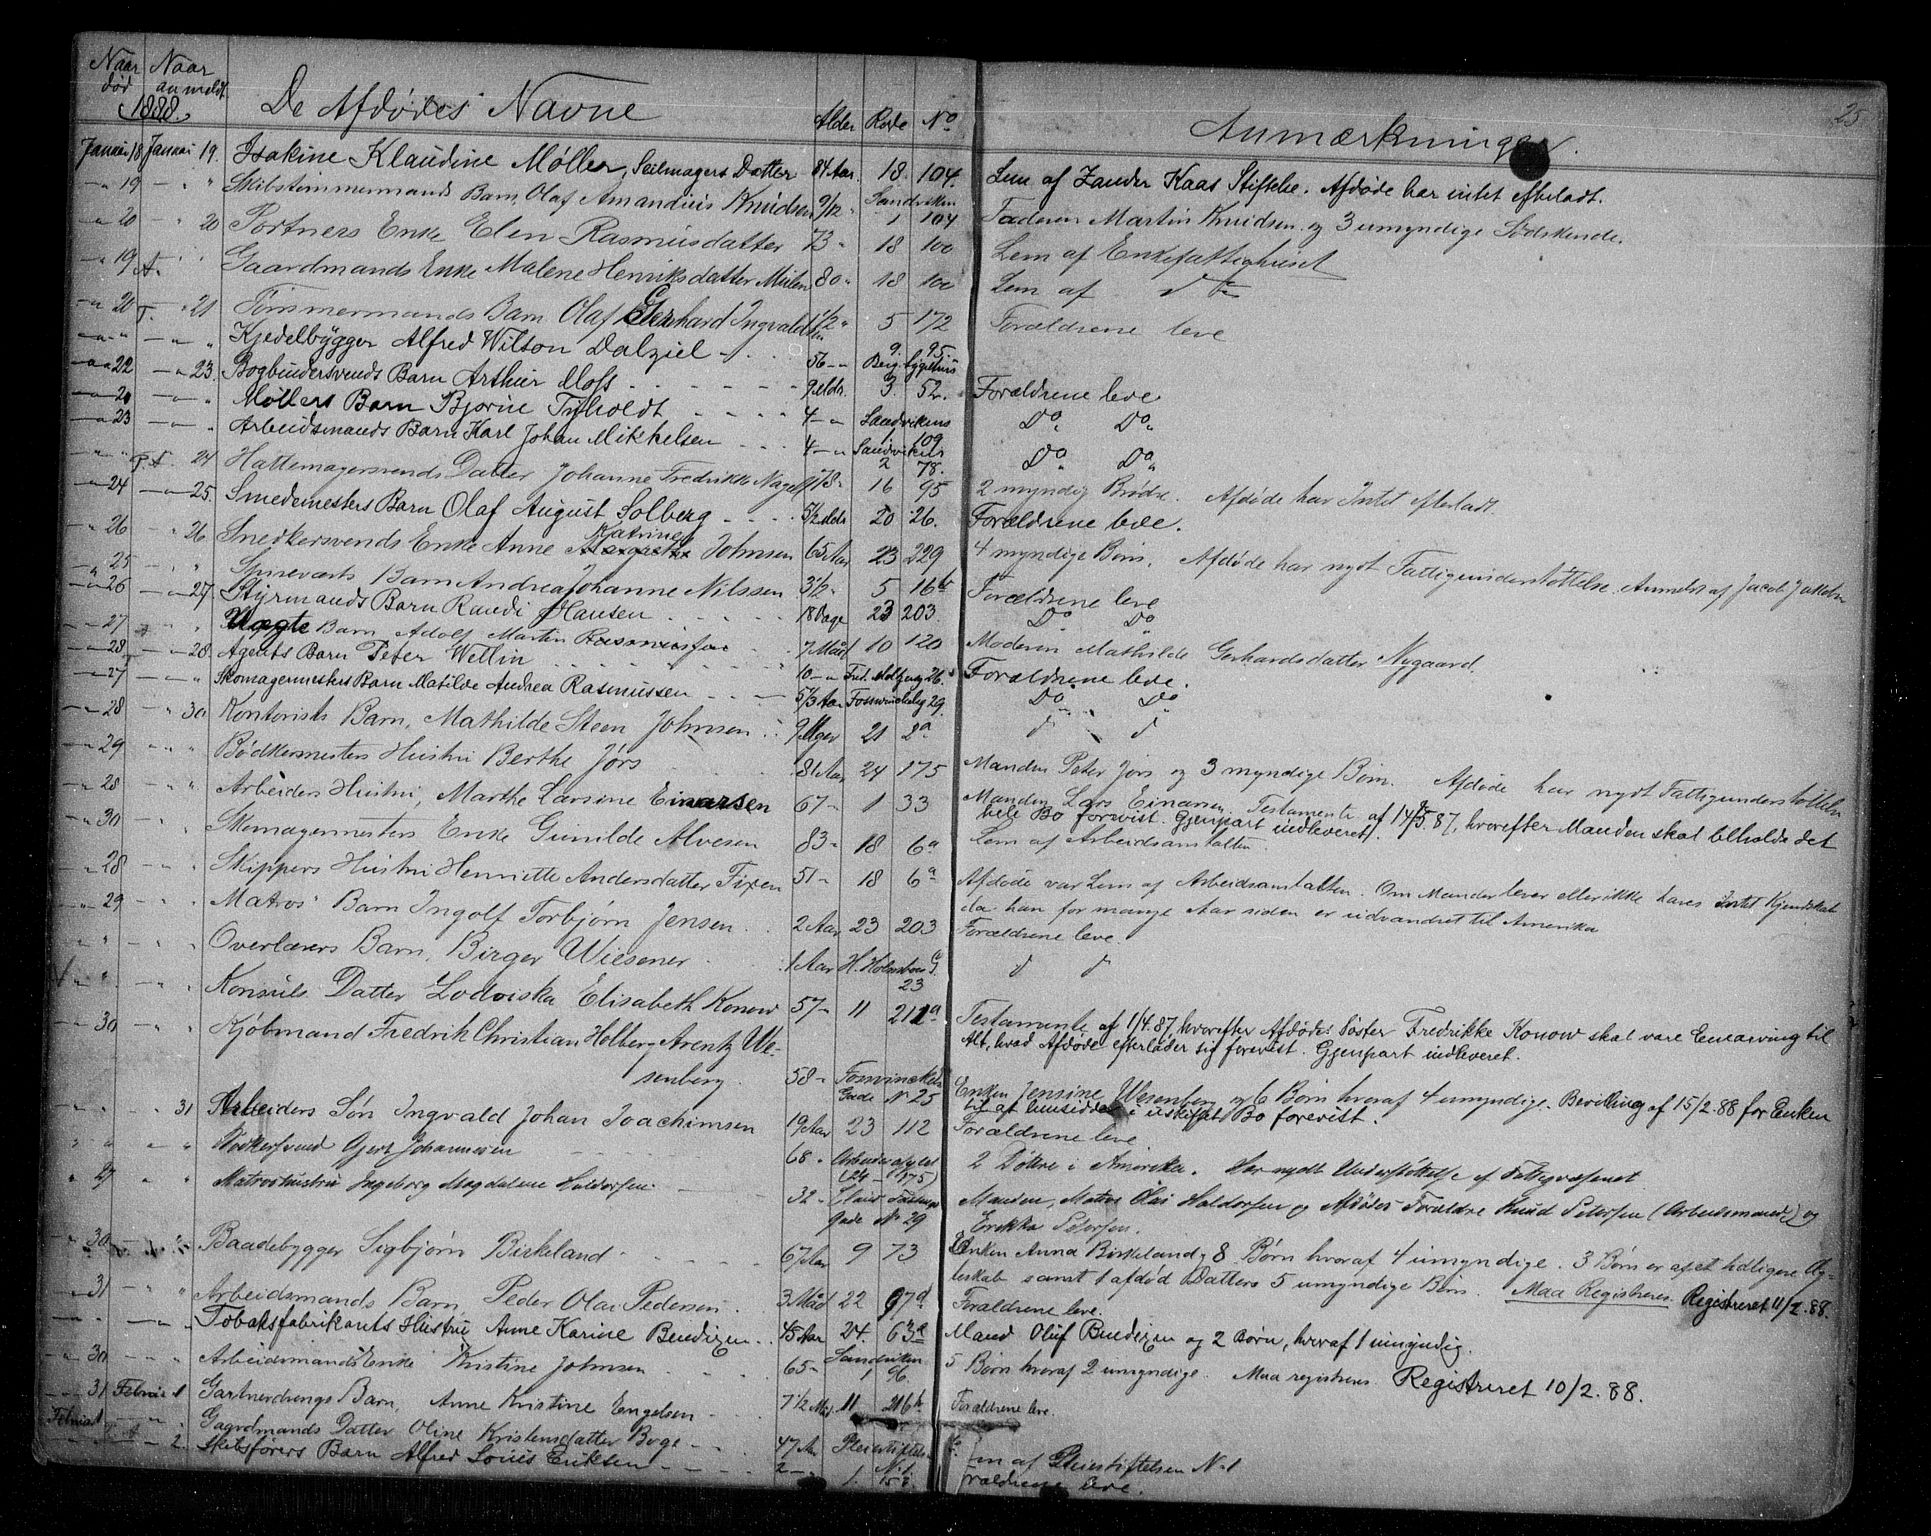 25
Naar død Naar anmeldt De Afdødes Navne Alder Rode No Anmærkninger.
1888.
Januar 18 Januar 19. Isakine Klaudine Møller, Seilmagers Datter 84 Aar. 18. 104. Lem af Zander Kaas Stiftelse. Afdøde har intet efterladt.
" 19 " " Skibstømmermands Barn, Olaf Amandius Knudsen 9/12 " Sandviken 1 104 Faderen Martin Knudsen og 3 umyndige Sødskende.
" 20 " 20 Portners Enke Elen Rasmusdatter 73 " 18 100 Lem af Enkefattighuset
" 19 A. " Gaardmands Enke Malene Henriksdatter 80 " 18 100 Lem af do
" 20 T. 21 Tømmermands Barn Olaf Gerhard Ingvaldsen 1 1/2 " 5 172 Forældrene leve
" " " " Kjedelbygger Alfred Wilson Dalziel 56 " 9. 95.
" 22 " 23. Bogbindersvends Barn Arthur Moss 9 Mdr. 3. 52. Forældrene leve
" 20 " " Møllers Barn Bjarne Tyholdt 4 " Sandvikens 1 109 Do Do
" 23 " " Arbeidsmands Barn Karl Johan Mikkelsen 4 " Sandviken 2 78. Do Do
" " 24 Hattemagersvends Datter Johanne Fredrikke Nagel 78 " 16 95 2 myndig Brødre. Afdøde har Intet efterladt.
" 24 " 25. Smedemesters Barn Olaf August Solberg 5 1/2 Mdr. 20 26. Forældrene leve.
" 26 " 26 Snedkersvends Enke Anne Katrine Johnsen 65 Aar 23 229 4 myndige Børn. Afdøde har nydt Fattigunderstøttelse. Anmeldt af Jacob
" 25 " " Barn Andrea Johanne Nilssen 3 1/2 " 5 16b Forældrene leve
" 26 " 27. Styrmands Barn Randi Hansen 18 Dage 23 203. Do Do
" 27 " " Barn Adolf Martin 7 Mdr 10 120 Moderen Mathilde Gerhardsdatter Nygaard.
" 28 " 28. Agents Barn Peter Wellin 10 " 26. Forældrene leve.
" 27 " " Skomagermesters Barn Matilde Andrea Rasmussen 29. Do Do
" 28 " 30 Kontorists Barn, Mathilde Steen Johnsen 9 Uger 21 2a d d
" 29 " " Bødkermesters Hustru Berthe Jørs 81 Aar 24 175 Manden Peter Jørs og 3 myndige Børn. Afdøde har nydt Fattigunderstøttelse
" 28 " " Arbeiders Hustru, Marthe Larsine Einarsen 67 " 1 33 Manden Lars Einarsen. Testamente af 14/5.87, hvorefter Manden skal beholde det
hele Bo forevist. Gjenpart indleveret.
" 30 " " Skomagermesters Enke Gunilde Alvesen 83 " 18 6a Lem af Arbeidsanstalten
" 28 " " Skippers Hustru Henriette Andersdatter Fixen 51 " 18 6a Afdøde var Lem af Arbeidsanstalten. Om Manden lever eller ikke haves Intet Kjendskab
da han for mange Aar siden er udvandret til Amerika
" 29 " " Matros' Barn Ingolf Torbjørn Jensen 2 Aar 23 203 Forældrene leve.
" " " " Overlærers Barn, Birger Wiesener 1 Aar H. Holmboes G. 23 d d
" " " " Konsuls Datter Lodviska Elisabeth Konow 57 " 11 Testamente af 1/4.87, hvorefter Afdødes Søster Fredrikke Konow skal være Enearving til
Alt, hvad Afdøde efterlader sig forevist. Gjenpart indleveret.
" 30 " " Kjøbmand Fredrik Christian Holberg Arentz We-
senberg. 58 " Fosvinckels Gade No 25 Enken Jensine Wesenberg og 6 Børn hvoraf 4 umyndige. Bevilling af 15/2.88 for Enken
til at hensidde i uskiftet Bo forevist.
" " " 31 Arbeiders Søn Ingvald Johan Joachimsen 19 Aar 23 112 Forældrene leve.
" " " " Gjert Johannesen 68 " (24 - 175) 2 Døtre i Amerika. Har nydt Understøttelse af Fattigvæsenet.
" 27 " " Matroshustru Ingeborg Magdalene Haldorsen 32 " Gade No 29 Manden, Matros Olai Haldorsen og Afdødes Forældre Knud Petersen (Arbeidsmand) og
Petersen.
" 30 " " Baadebygger Sigbjørn Birkeland 67 Aar 9 73 Enken Anna Birkeland, 8 Børn hvoraf 4 umyndige. 3 Børn er af et tidligere Æg-
teskab samt 1 afdød Datters 5 umyndige Børn. Maa Registreres. Registreret 11/2.88.
" 31 " " Arbeidsmands Barn, Peder Olai Pedersen 3 Mdr 22 97d Forældrene leve.
" " " " Tobaksfabrikants Hustru Anne Karine Bendixen 45 Aar 24. 63a Mand Oluf Bendixen og 2 Børn, hvoraf 1 umyndig.
" 30 " " Arbeidsmands Enke Kristine Johnsen 65 " Sandviken 1 96. 5 Børn hvoraf 2 umyndige. Maa registreres. Registreret 10/2.88.
" 31 Februar 1 Gartnerdrengs Barn, Anne Kristine Engelsen 7 1/2 Mdr. 11 216b Forældrene leve.
Februar 1 " " Gaardmands Datter Oline Kristensdatter Boge 47 Aar Pleiestiftelsen No 1 Lem af Pleiestiftelsen No 1
" " " 2. Skibsførers Barn Alfred Louis Eriksen 2 " 1. Forældrene leve.